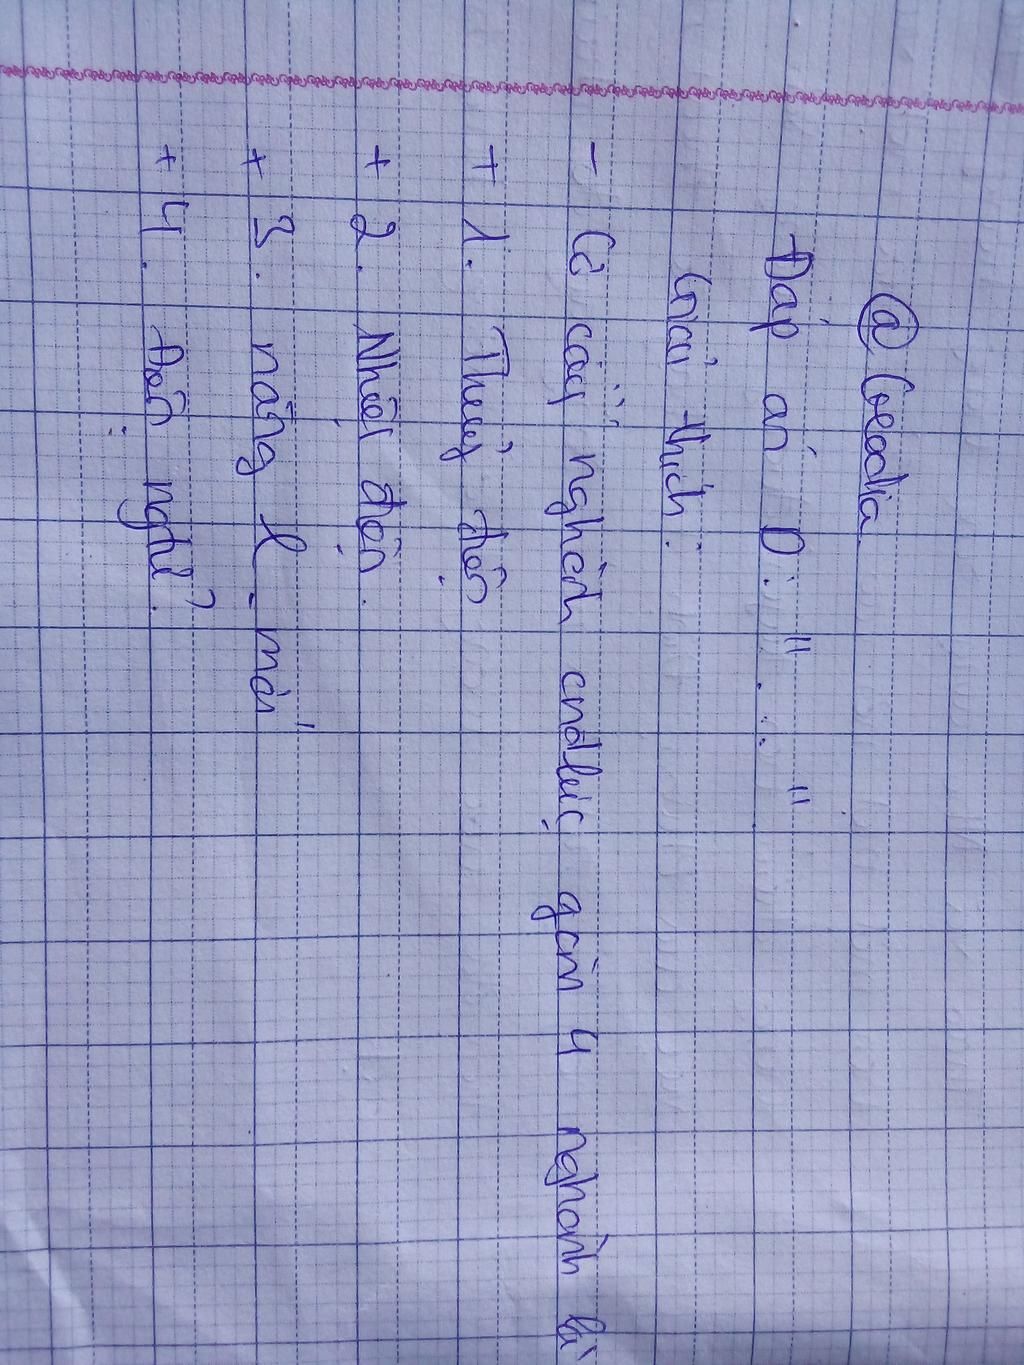 @ Geodia
Đáp án D. " . . . "
Giải thích:
- Cơ cấu nghành cnđlực gồm 4 nghành là
+ 1. Thuỷ điện
+ 2. Nhiệt điện.
+ 3. năng l. mới
+ 4. Điện nghỉ.